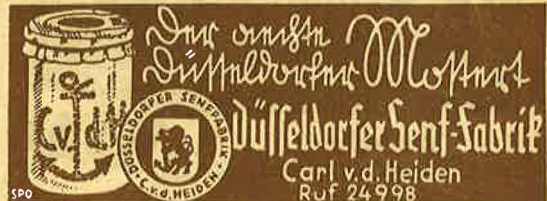 Der aechte
Düsseldorfer Mostert
C v. d H
DÜSSELDORFER SENFFABRIK
C.v.d. HEIDEN
Düsseldorfer Senf-Fabrik
Carl v.d. Heiden
Ruf 24998
SPO